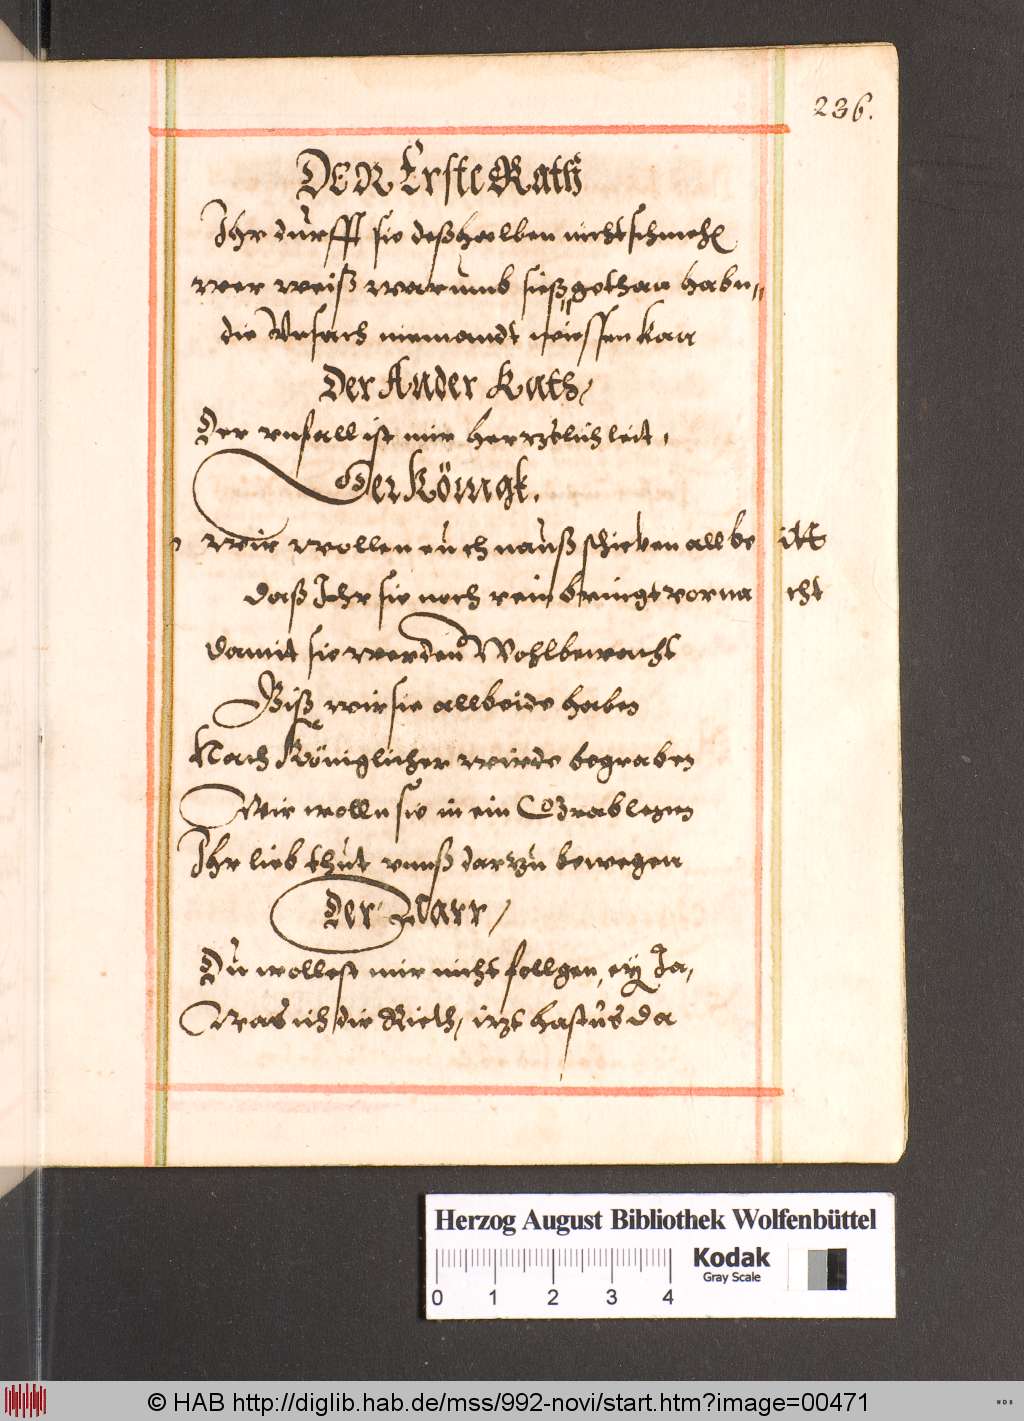 236.
DER Erste Rath
Ihr durfft sie deßhalben nicht schmehen
wer weiß warumb sieß gethan habn
die Vrsach niemandt wiessen kan
Der Ander Rath
Der vnfall ist mir hertzlich leit
Der Könngk.
Wir wollen euch nauß schicken all beitt
daß Ihr sie noch rein bringt vor nacht
damit sie werden Wohlbewacht
Biß wir sie all beide haben
Nach Königlicher wirde begraben
Wir wolln sie in ein Grab legen
Ihr lieb thut vnnß darzu bewegen
Der Narr
Du wollest mir nicht follgen, ey Ja,
Was ich dir Rieth, itzt hastus da
Herzog August Bibliothek Wolfenbüttel
Kodak
Gray Scale
0 1 2 3 4
© HAB http://diglib.hab.de/mss/992-novi/start.htm?image=00471